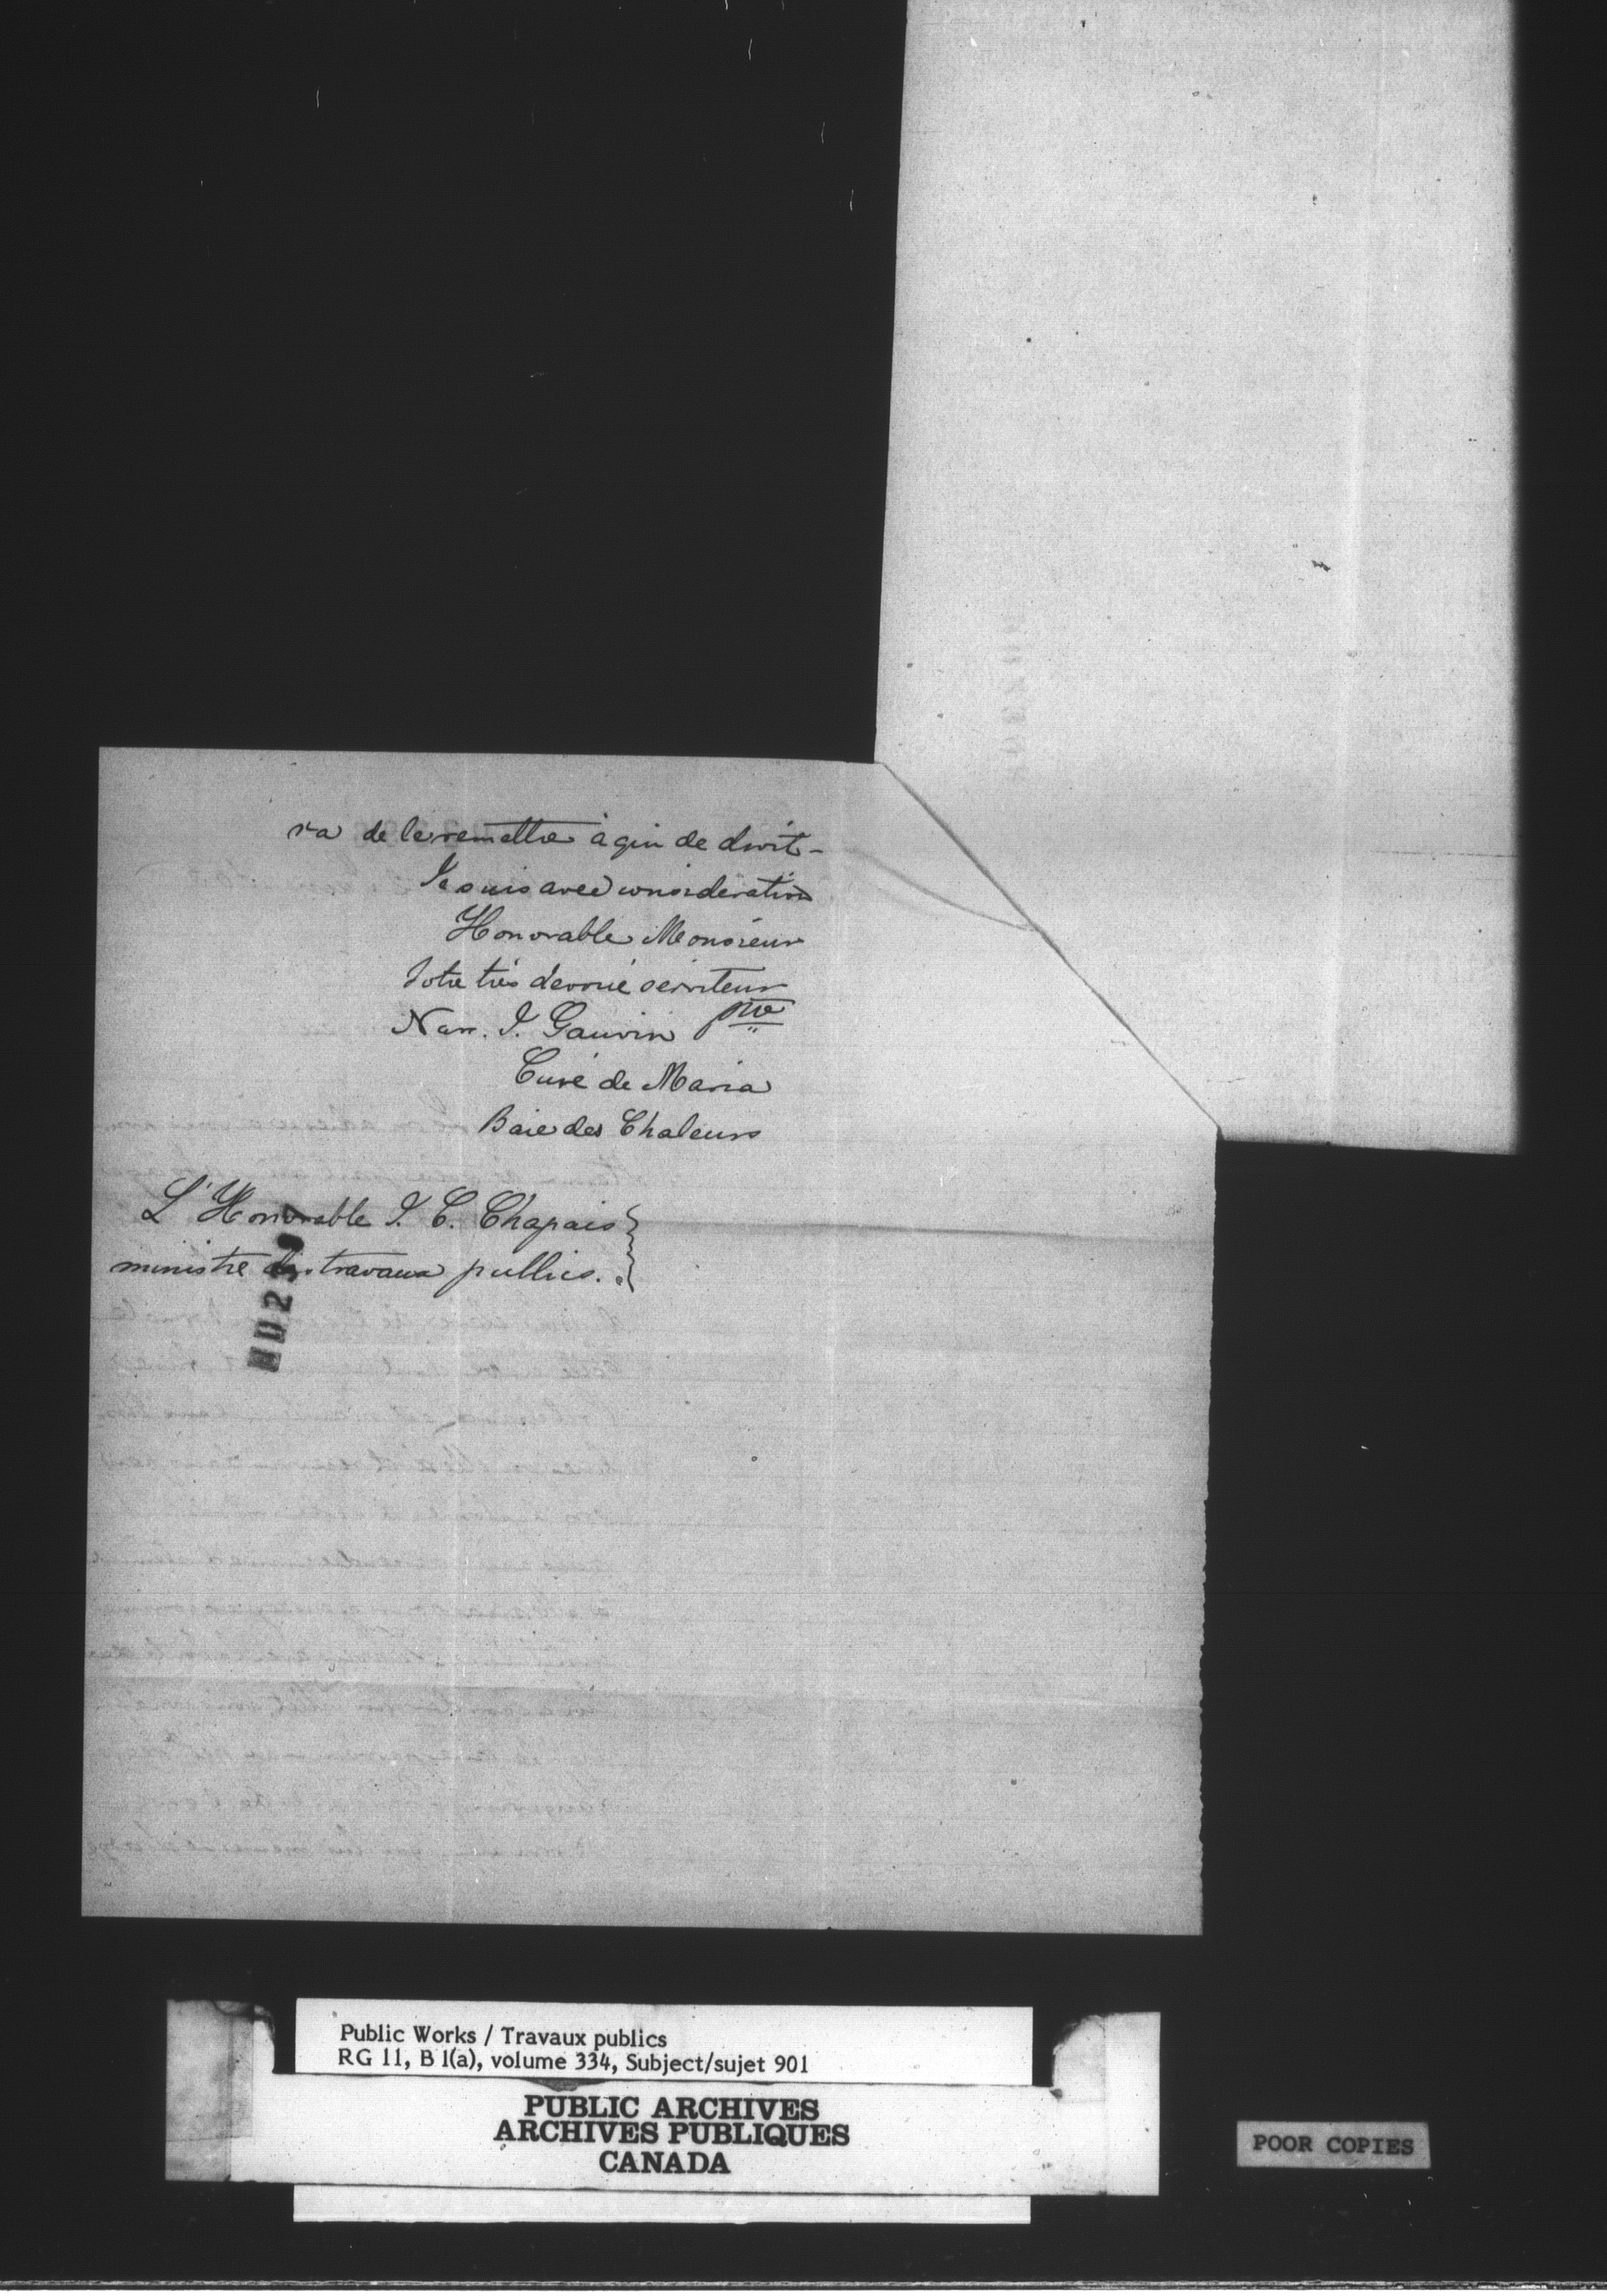 ra de le remettre à qui de droit -
Je suis avec considération
Honorable Monsieur
Votre très dévoué serviteur
Narc. J. Gauvin ptre
Curé de Maria
Baie des Chaleurs
L'Honorable J. C. Chapais
ministre des travaux publics.
Public Works / Travaux publics
RG 11, B 1(a), volume 334, Subject/sujet 901
PUBLIC ARCHIVES
ARCHIVES PUBLIQUES
CANADA
POOR COPIES